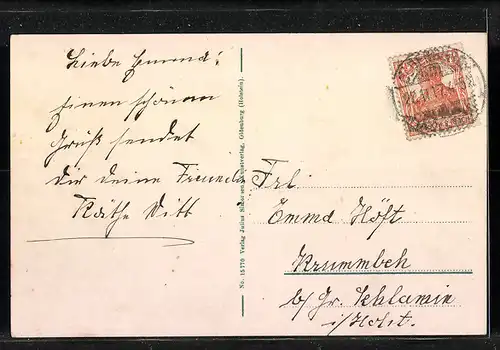 Liebe Emma!
Einen schönen
Gruß sendet
dir deine Freundin
Käthe Witt
No. 15770 Verlag Julius Simonsen, Kunstverlag, Oldenburg (Holstein).
Frl.
Emma Höft
Krummbek
b/ Gr. Schlamin
i/Holst.